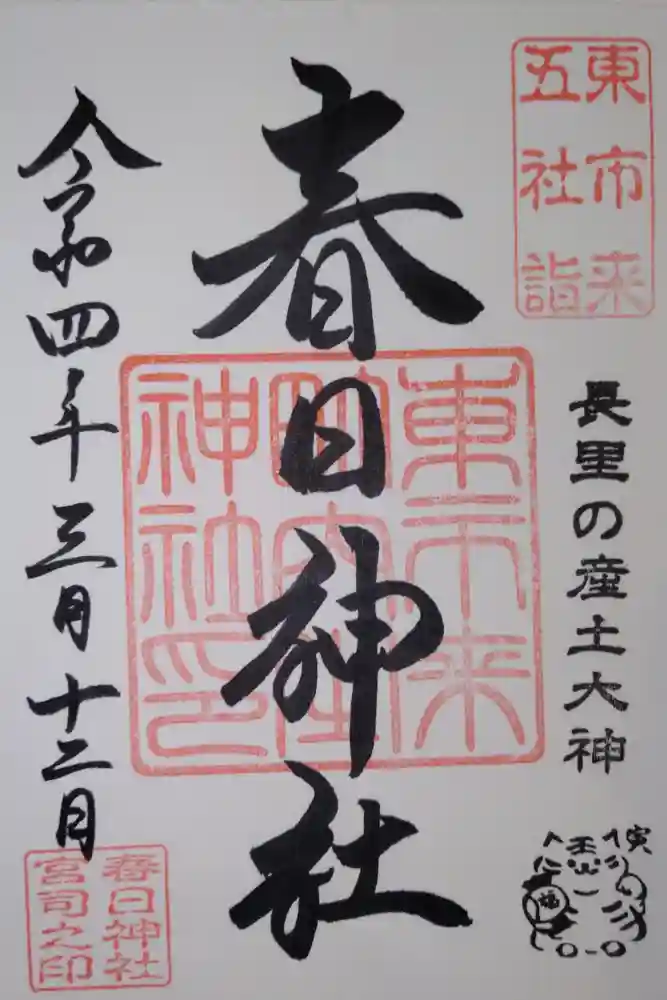 東市来
五社詣
長里の産土大神
春日神社
東市来
神社印
令和四年三月十二日
春日神社
宮司之印
寅
福